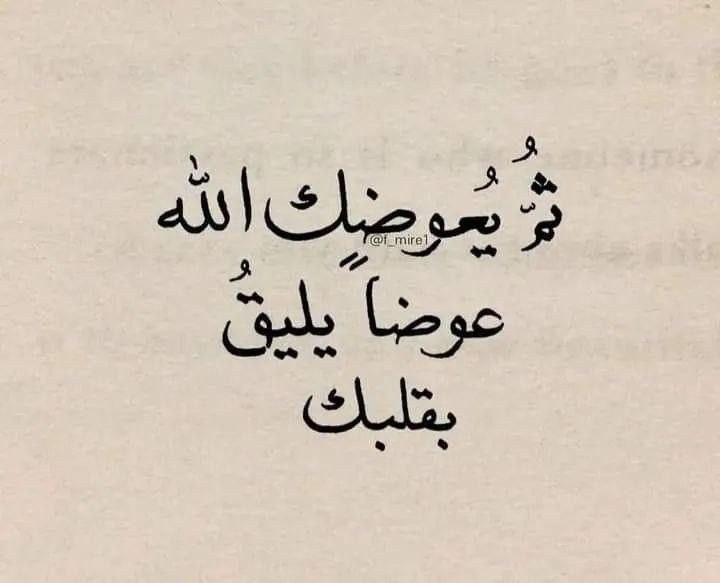 ثُمَّ يُعوضك الله
@f_mire1
عوضاً يليقُ
بقلبك